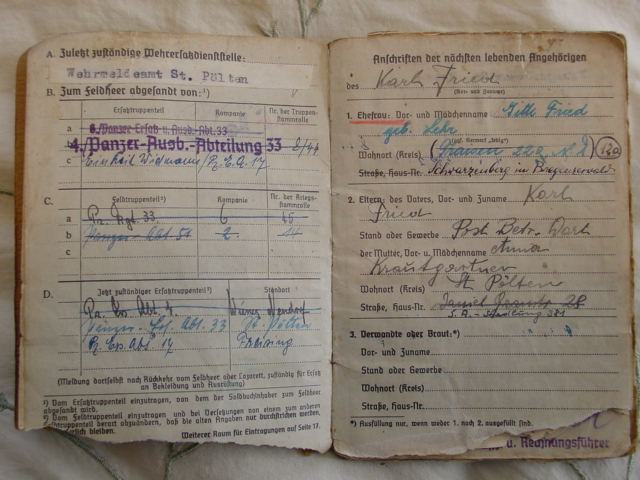 A. Zuletzt zuständige Wehrersatzdienststelle:
Wehrmeldeamt St. Pölten
B. Zum Feldheer abgesandt von:¹)
Ersatztruppenteil Kompanie Nr. der Truppen-stammrolle
a 6. Panzer-Ersatz- u. Ausb.-Abt. 33
b 4. Panzer-Ausb.-Abteilung 33
c Einheit Widmann/R.E.A. 17
C. Feldtruppenteil²) Kompanie Nr. der Kriegs-stammrolle
a Pz. Rgt. 33. 6 45
b Panzer-Abt. 51 2. 14
c
D. Jetzt zuständiger Ersatztruppenteil²) Standort
Pz. Ers. Abt. 4. Wiener Neudorf
Panzer-Ers. Abt. 33 St. Pölten
R. Ers. Abt. 17 Freising
(Meldung dortselbst nach Rückkehr vom Feldheer oder Lazarett, zuständig für Ersatz
an Bekleidung und Ausrüstung)
¹) Vom Ersatztruppenteil einzutragen, von dem der Soldbuchinhaber zum Feldheer
abgesandt wird.
²) Vom Feldtruppenteil einzutragen und bei Versetzungen von einem zum anderen
Feldtruppenteil derart abzuändern, daß die alten Angaben nur durchstrichen werden,
leserlich bleiben. Weiterer Raum für Eintragungen auf Seite 17.
Anschriften der nächsten lebenden Angehörigen
des Karl Fried
(Vor- und Zuname)
1. Ehefrau: Vor- und Mädchenname Fried
geb.
(ggf. Vermerk „ledig“)
Wohnort (Kreis)
Straße, Haus-Nr. Schwarzenberg im Bregenzerwald
2. Eltern: des Vaters, Vor- und Zuname Karl
Fried
Stand oder Gewerbe Post Betr.
der Mutter, Vor- u. Mädchenname Anna
Krautgartner
Wohnort (Kreis) St. Pölten
Straße, Haus-Nr. Daniel 28
S.A.-Siedlung 381
3. Verwandte oder Braut:*)
Vor- und Zuname
Stand oder Gewerbe
Wohnort (Kreis)
Straße, Haus-Nr.
*) Ausfüllung nur, wenn weder 1. noch 2. ausgefüllt sind.
u. Rechnungsführer